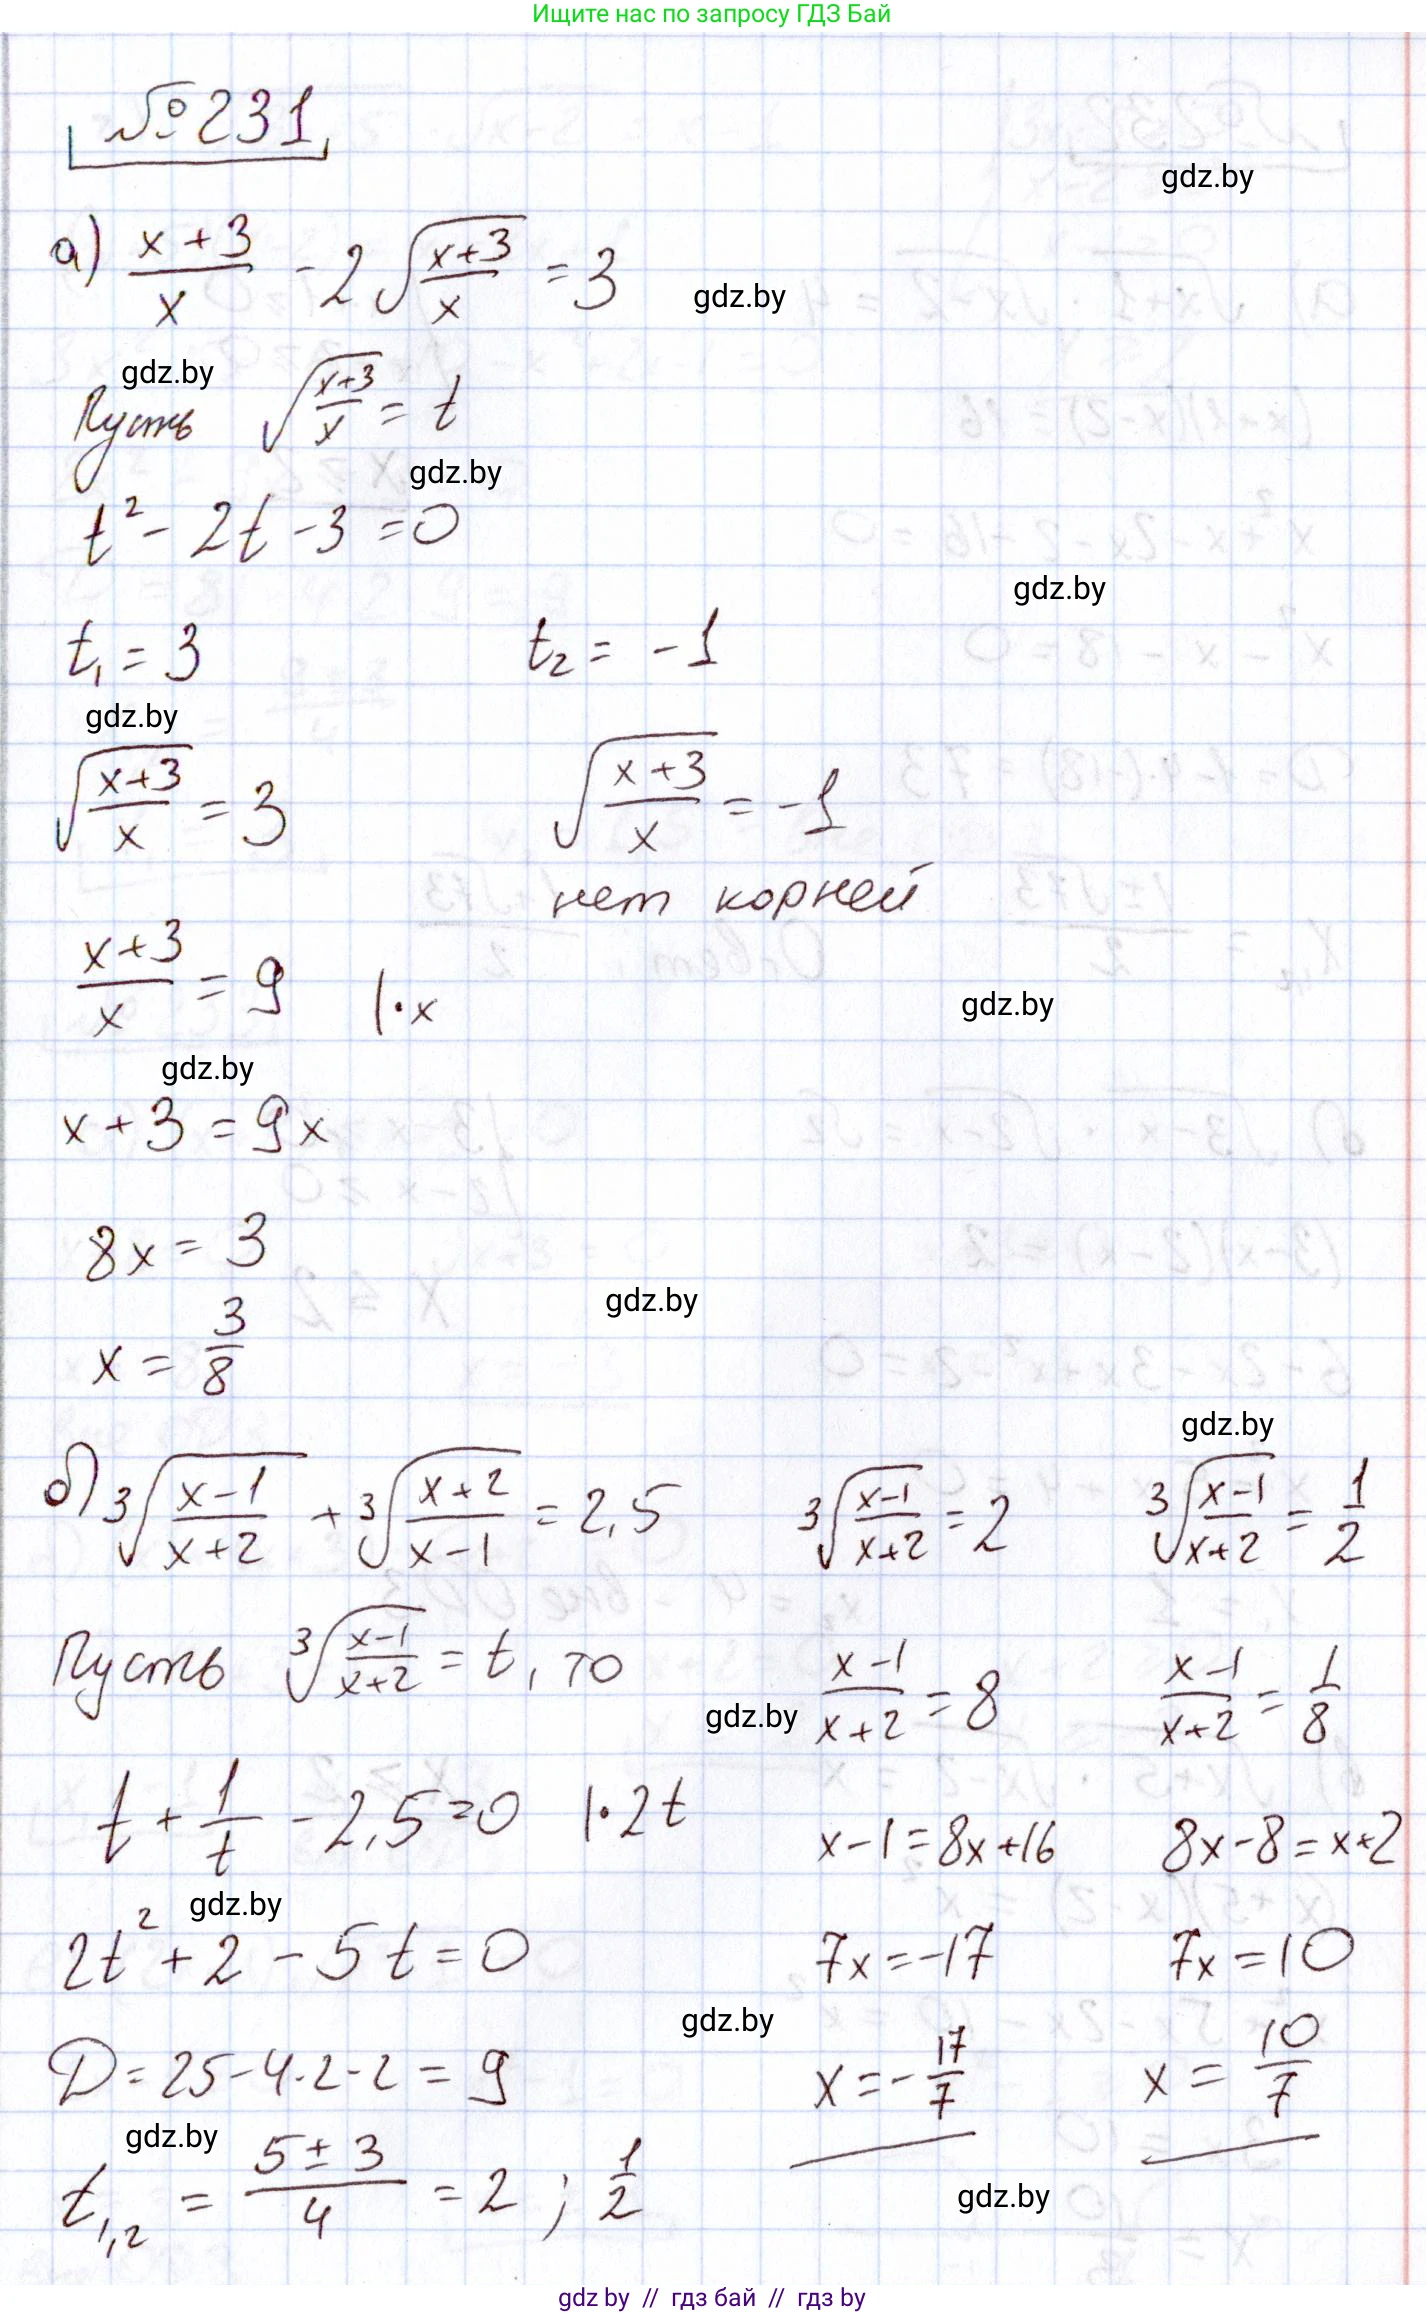 Ищите нас по запросу ГДЗ Бай
№231
gdz.by
а) (x+3)/x - 2√((x+3)/x) = 3
gdz.by
gdz.by
Пусть √((x+3)/x) = t
gdz.by
t² - 2t - 3 = 0
gdz.by
t₁ = 3 t₂ = -1
gdz.by
√((x+3)/x) = 3 √((x+3)/x) = -1
нет корней
(x+3)/x = 9 |·x
gdz.by
gdz.by
x + 3 = 9x
8x = 3
gdz.by
x = 3/8
gdz.by
б) ∛((x-1)/(x+2)) + ∛((x+2)/(x-1)) = 2,5 ∛((x-1)/(x+2)) = 2 ∛((x-1)/(x+2)) = 1/2
Пусть ∛((x-1)/(x+2)) = t, то (x-1)/(x+2) = 8 (x-1)/(x+2) = 1/8
gdz.by
t + 1/t - 2,5 = 0 |·2t x-1 = 8x+16 8x-8 = x+2
gdz.by
2t² + 2 - 5t = 0 7x = -17 7x = 10
gdz.by
D = 25-4·2·2 = 9 x = -17/7 x = 10/7
gdz.by
t₁,₂ = (5±3)/4 = 2 ; 1/2
gdz.by
gdz by // гдз бай // гдз by